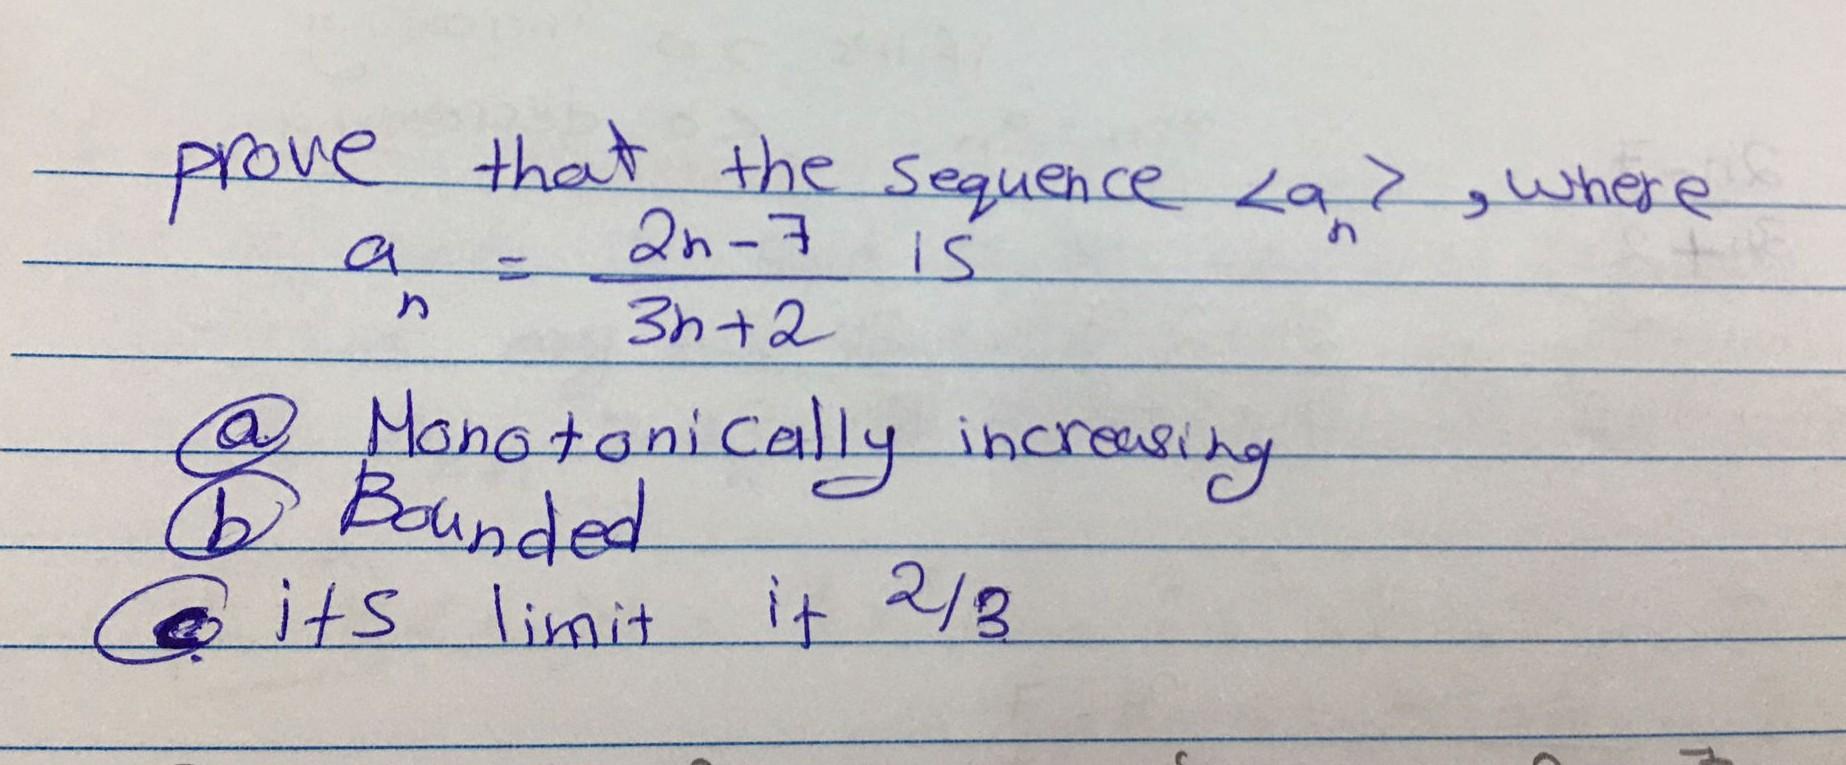 prove that the sequence <aₙ>, where
aₙ = (2n-7)/(3n+2) is
(a) Monotonically increasing
(b) Bounded
(c) its limit it 2/3